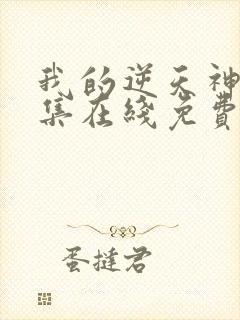 我的逆天神
集在线免费
蛋挞君